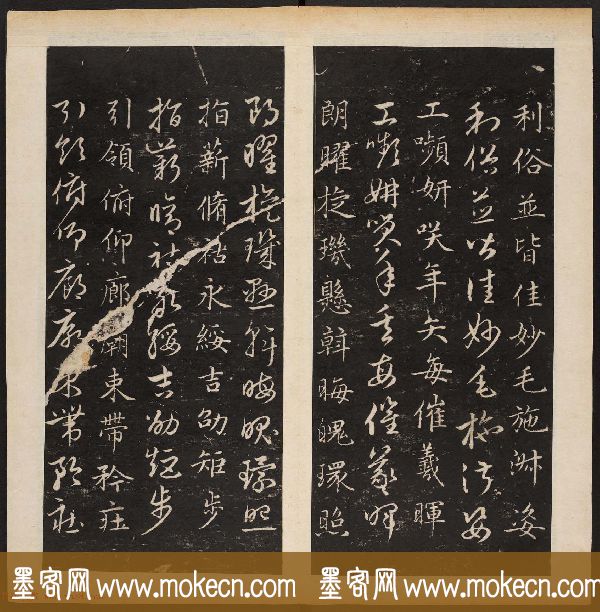 利俗並皆佳妙毛施淑姿
利俗並皆佳妙毛施淑姿
工嚬妍咲年矢每催羲暉
工嚬妍咲年矢每催羲暉
朗曜旋璣懸斡晦魄環照
朗曜旋璣懸斡晦魄環照
指薪脩祜永綏吉劭矩步
指薪脩祜永綏吉劭矩步
引領俯仰廊廟束帶矜莊
引領俯仰廊廟束帶矜莊
墨客网 www.mokecn.com 墨客网 www.mokecn.com